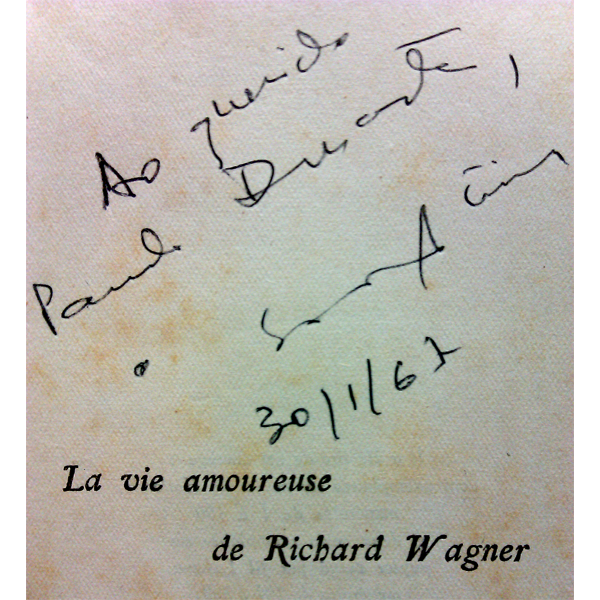 Ao querido
Paulo Duarte,
o
30/1/67
La vie amoureuse
de Richard Wagner